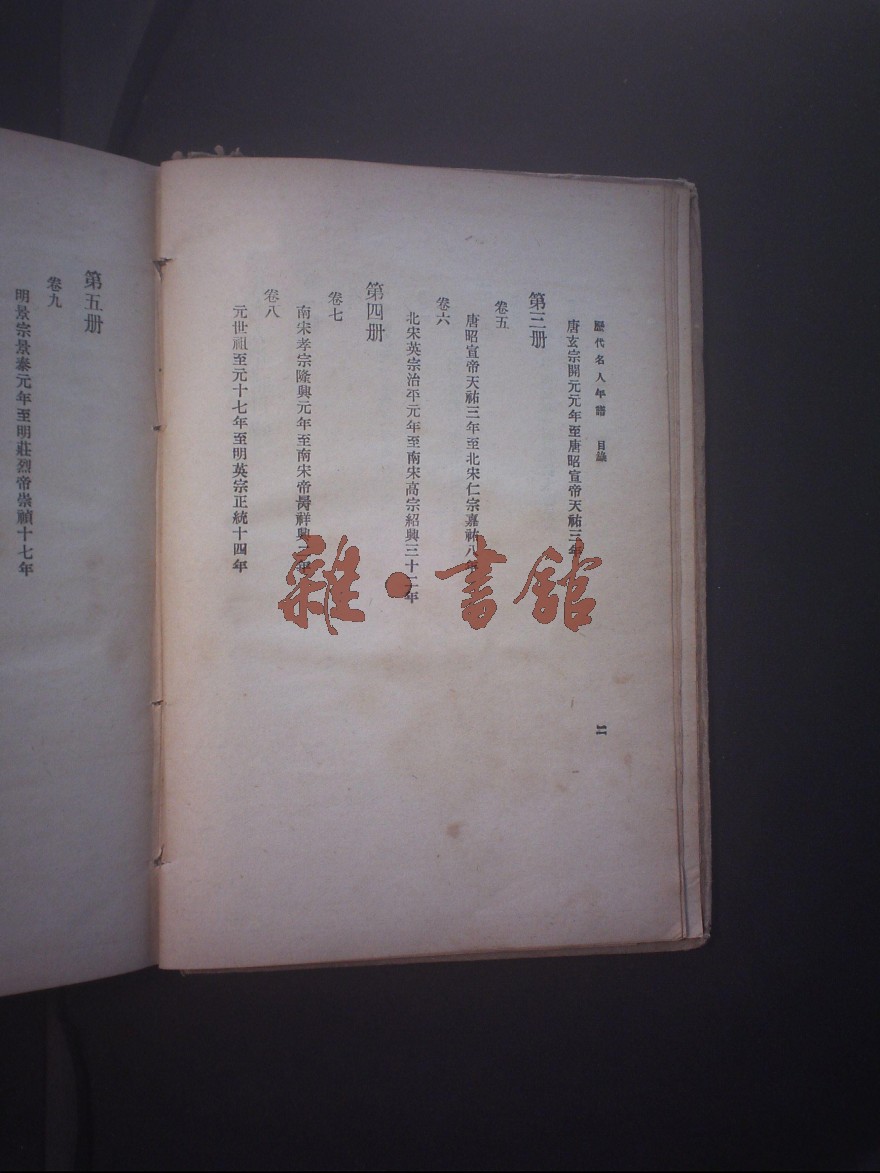 歷代名人年譜 目錄
唐玄宗開元元年至唐昭宣帝天祐三年
第三册
卷五
唐昭宣帝天祐三年至北宋仁宗嘉祐八年
卷六
北宋英宗治平元年至南宋高宗紹興三十二年
第四册
卷七
南宋孝宗隆興元年至南宋帝昺祥興年
卷八
元世祖至元十七年至明英宗正統十四年
二
第五册
卷九
明景宗景泰元年至明莊烈帝崇禎十七年
雜·書館